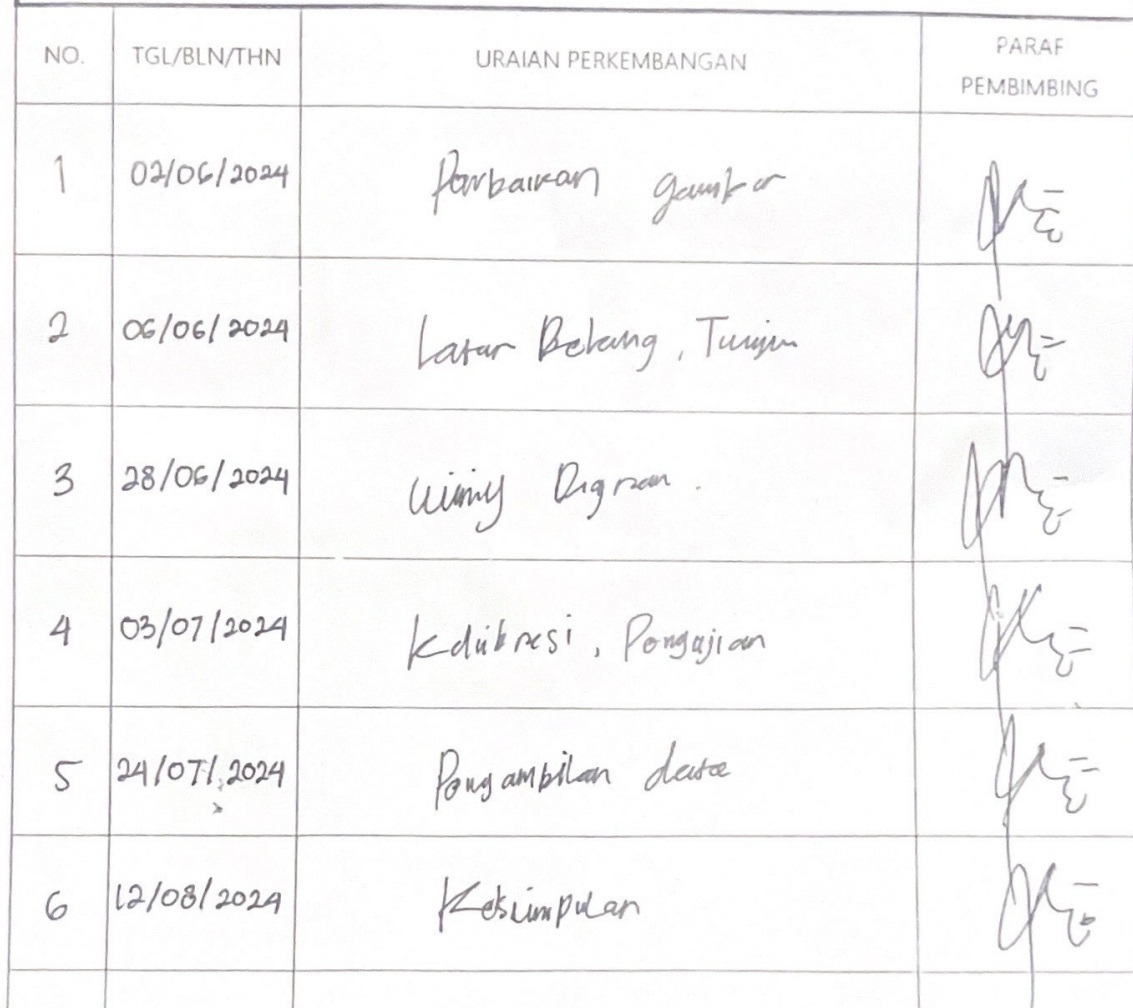 NO. TGL/BLN/THN URAIAN PERKEMBANGAN PARAF PEMBIMBING
1 02/06/2024 Perbaikan gambar
2 06/06/2024 Latar Belakang, Tujuan
3 28/06/2024 Wiring Diagram.
4 03/07/2024 Kalibrasi, Pengujian
5 24/07/2024 Pengambilan data
6 12/08/2024 Kesimpulan